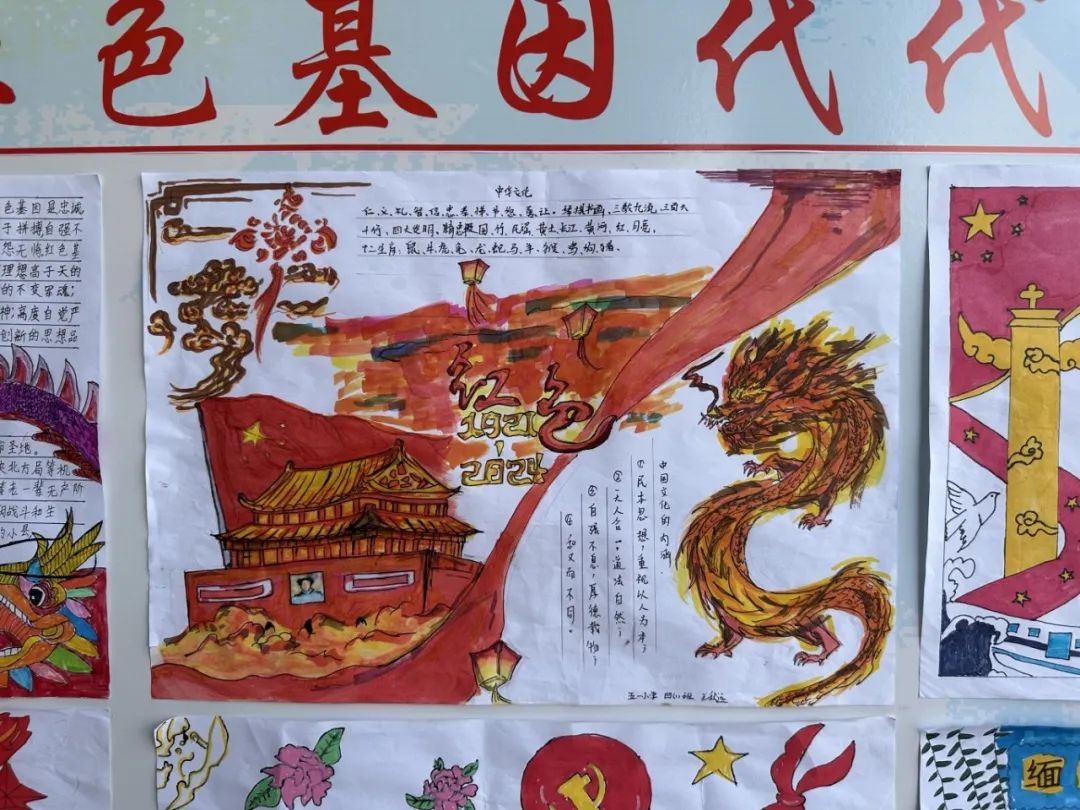 色基因代代
色基因是忠诚
于拼搏自强不
怨无悔红色基
理想高于天的
的不变军魂；
神；高度自觉严
创新的思想品
圣地。
央北方局等机
老一辈无产阶
战斗和生
的小县
中华文化
仁、义、礼、智、信、忠、孝、悌、节、恕、勇、让。琴棋书画、三教九流、三百六
十行、四大发明、民谣、黄土、长江、黄河、红、月亮、
十二生肖：鼠、牛、虎、兔、龙、蛇、马、羊、猴、鸡、狗、猪。
红色
1921
2024
中国文化的内涵
①民本思想，重视以人为本；
②天人合一，道法自然；
③自强不息，厚德载物；
④和而不同。
五一小学 四(1)班
缅